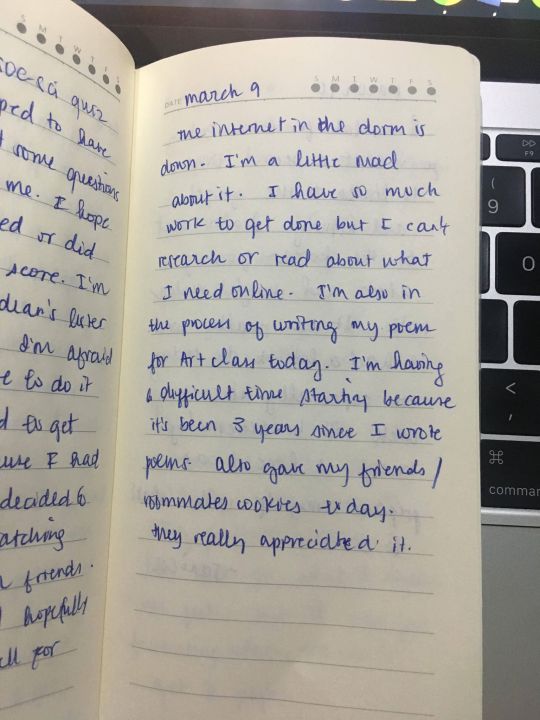 S M T W T F S
soc-sci quiz
to have
some questions
me. I hope
or did
score. I'm
dean's lister
I'm afraid
to do it
to get
I had
decided to
friends.
hopefully
for
DATE march 9
S M T W T F S
the internet in the dorm is
down. I'm a little mad
about it. I have so much
work to get done but I can't
research or read about what
I need online. I'm also in
the process of writing my poem
for Art class today. I'm having
a difficult time starting because
it's been 3 years since I wrote
poems. also gave my friends /
roommates cookies today.
they really appreciated it.
F9
(
9
O
<
,
⌘
comman